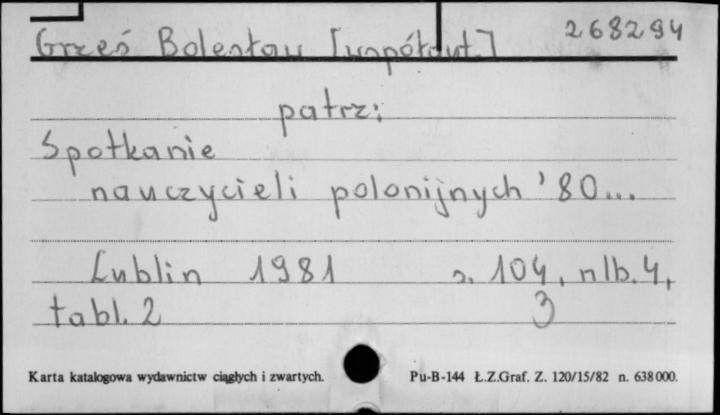 268294
Grześ Bolesław [współaut.]
patrz:
Spotkanie
nauczycieli polonijnych '80...
Lublin 1981 s. 104, nlb. 4,
tabl. 2 3
Karta katalogowa wydawnictw ciągłych i zwartych. Pu-B-144 Ł.Z.Graf. Z. 120/15/82 n. 638000.